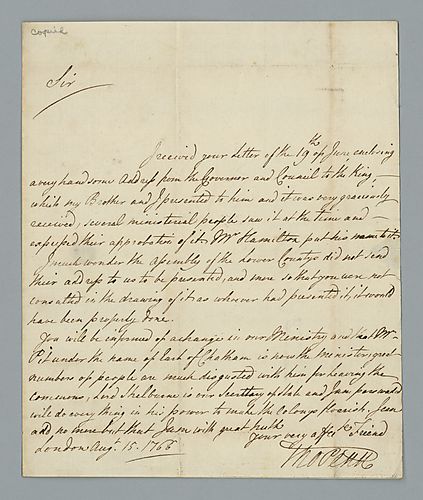 copied
Sir
I received your Letter of the 19th of June, enclosing
a very handsome Address from the Governor and Council to the King,
which my Brother and I presented to him and it was very graciously
received, several ministerial people saw it at the time and
expressed their approbation of it, Mr Hamilton put his name to it.
I much wonder the Assembly of the Lower Countys did not send
their address to us to be presented, and more so that you were not
consulted in the drawing of it as whoever had presented it, it would
have been properly done.
You will be informed of a change in our Ministry and that Mr
Pit under the name of Earl of Chatham is now the Minister, great
numbers of people are much disgusted with him for leaving the
commons, Lord Shelburne is our Secretary of State and I am persuaded
will do every thing in his power to make the Colonys flourish. I can
add no more but that I am with great truth
your very affte Friend
London Augt. 15. 1766
Tho Penn